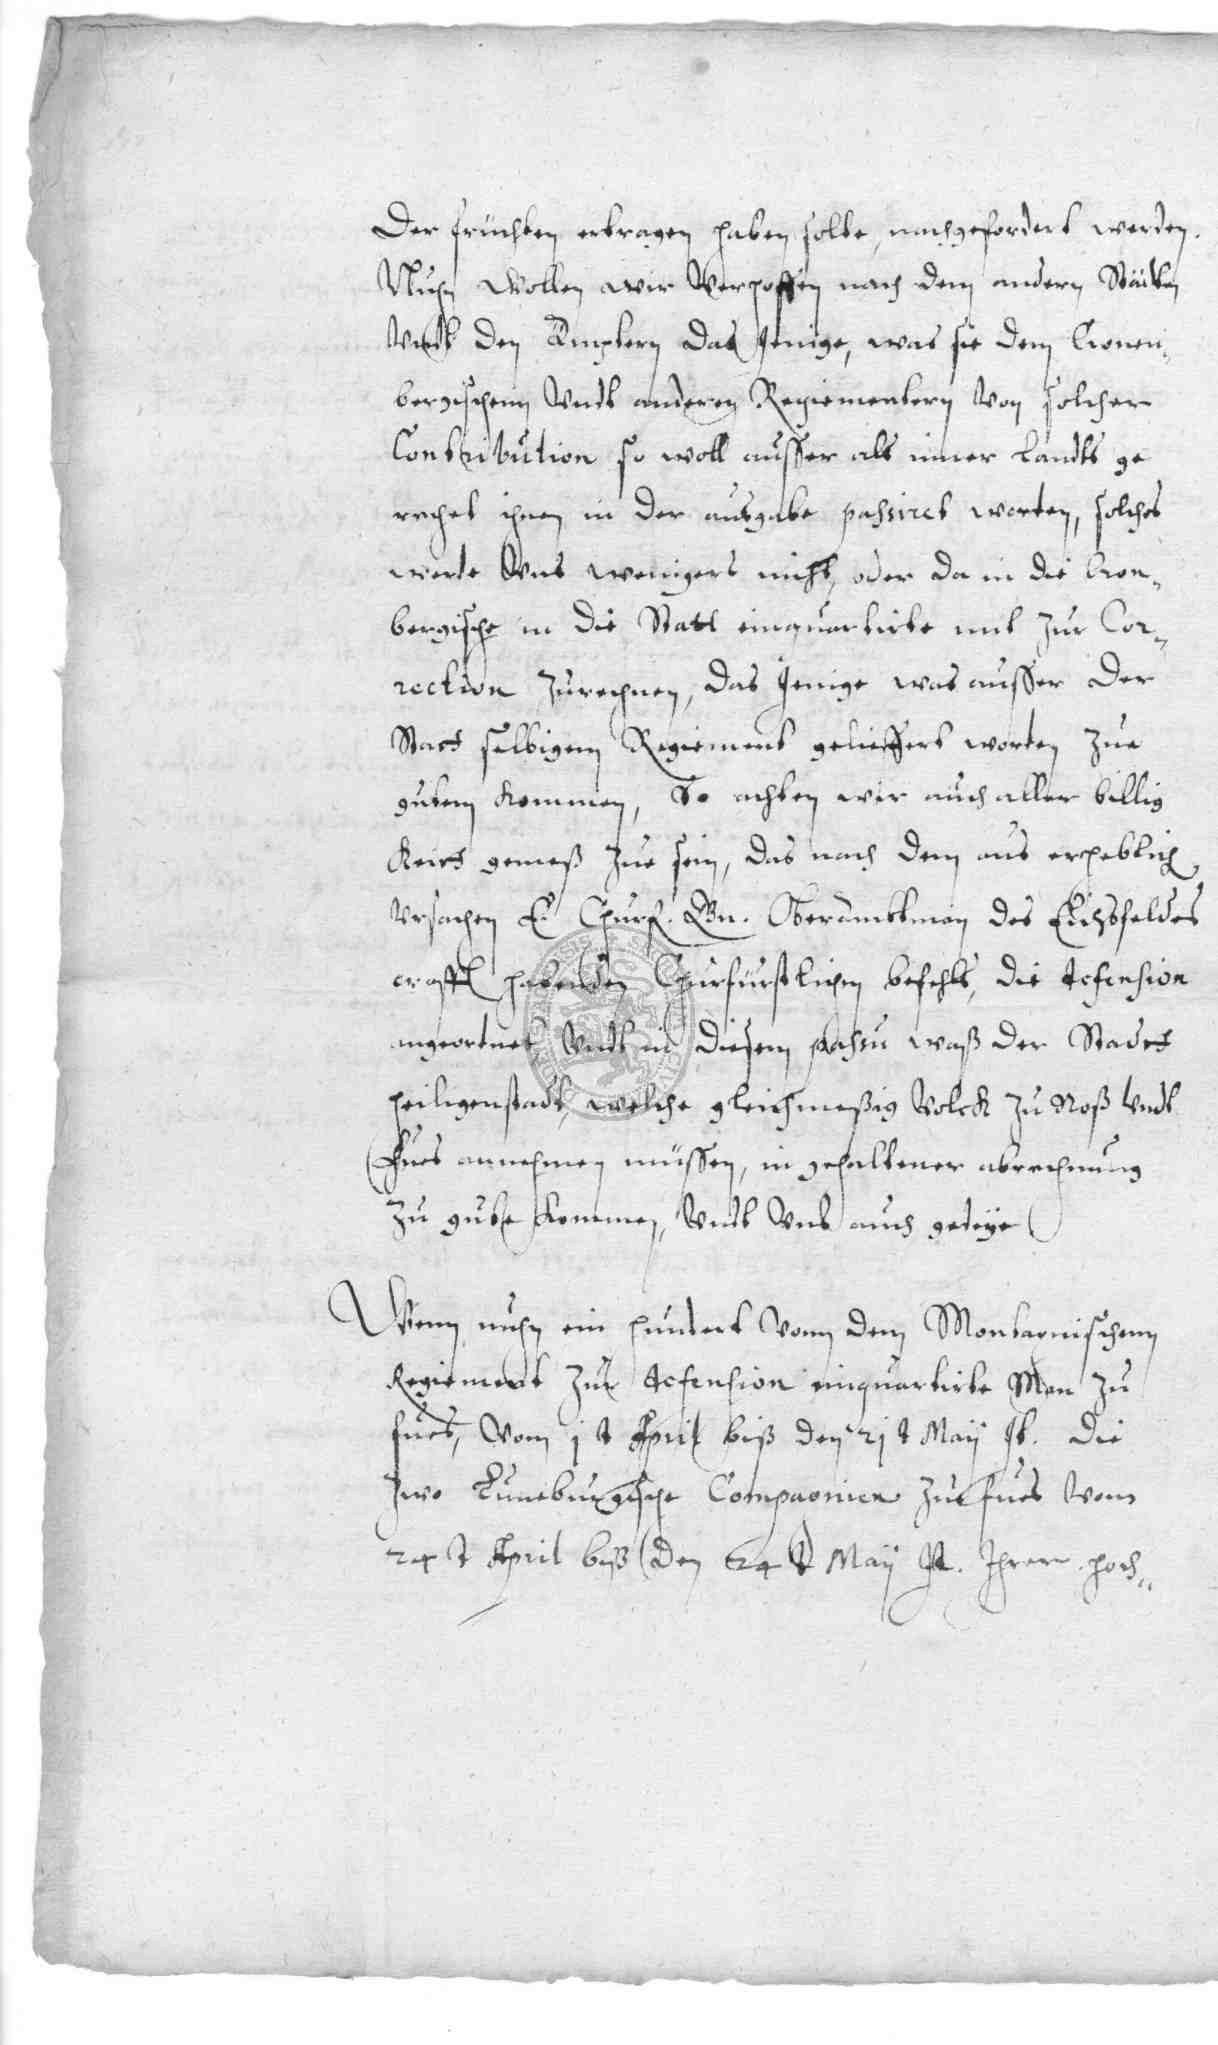 Der früchten ertragen haben solte, nachgefordert werden.
Nuhn Wollen wir Verhoffen nach dem andern Stätten
Vndt den Emptern das Jenige, was sie dem Cronen-
bergischenn Vndt anderen Regiementern Von solcher
Contribution so woll ausser als inner Landts ge
rechet ihnen in der ausgabe passiret worten, solches
werte Vns wenigers nicht, oder da in die Cron-
bergische in die Statt einquartirte mit zur Cor-
rection zurechnen, das Jenige was ausser der
Statt selbigem Regiement gelieffert worten zue
gutem kommen, So achten wir auch aller billig
keitt gemeß zue sein, das nach dem aus erheblich
Vrsachen E. Churf. Gn. Oberambtman des Eichsfeldes
crafft habenden Churfürstlichen befehls, die tefension
angeordnet Vndt in diesem passu waß der Stadtt
heiligenstadt, welche gleichmeßig Volck zu Roß Vndt
Fues annehmen müssen, in gehaltener abrechnung
zu gute kommen, Vndt Vns auch geteye
Wenn nuhn ein hundert Vonn dem Montagnischenn
Regiement zur tefension einquartirte Man zu
fues, Vom 1 t April biß den 21 t Maij St. die
zwo Luneburgische Compagnien zu fues Vom
24 t April biß den 24 t Maij St. Ihrer hoch-